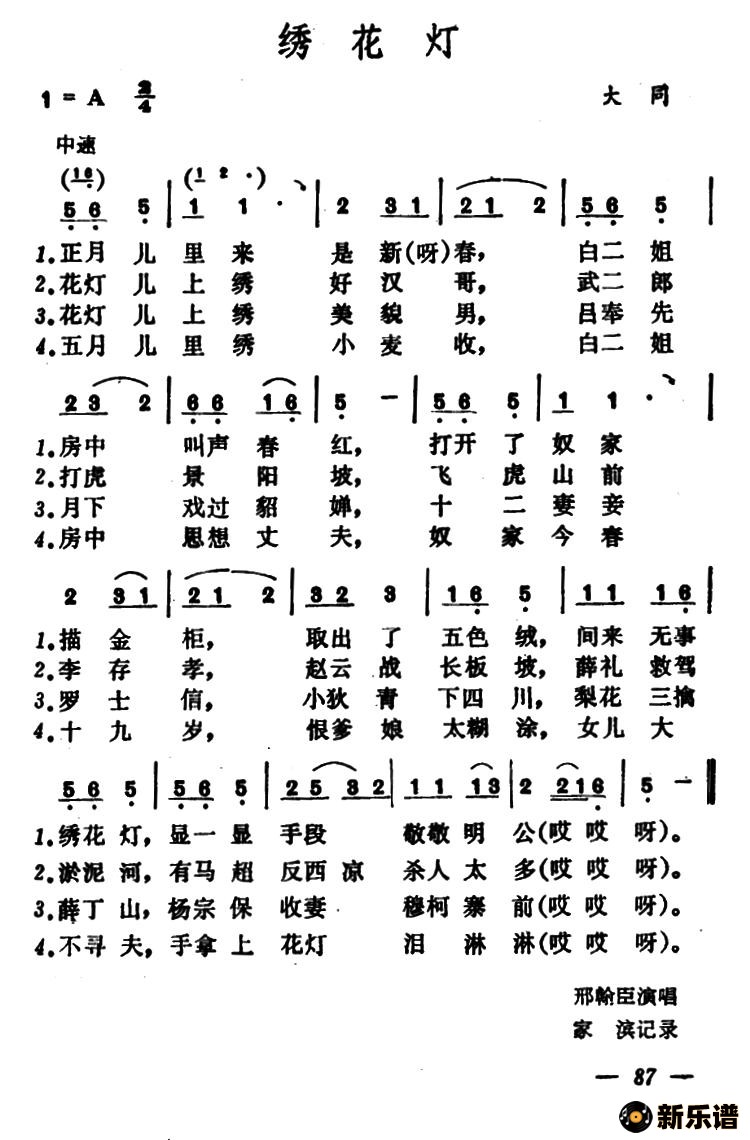 绣花灯
1=A 2/4 大同
中速
(1 6) (1 2 ·)
5 6 5 | 1 1 · | 2 3 1 | 2 1 2 | 5 6 5 |
1.正月儿里来是新(呀)春，白二姐
2.花灯儿上绣好汉哥，武二郎
3.花灯儿上绣美貌男，吕奉先
4.五月儿里绣小麦收，白二姐
2 3 2 | 6 6 1 6 | 5 － | 5 6 5 | 1 1 · |
1.房中叫声春红，打开了奴家
2.打虎景阳坡，飞虎山前
3.月下戏过貂婵，十二妻妾
4.房中思想丈夫，奴家今春
2 3 1 | 2 1 2 | 3 2 3 | 1 6 5 | 1 1 1 6 |
1.描金柜，取出了五色绒，间来无事
2.李存孝，赵云战长板坡，薛礼救驾
3.罗士信，小狄青下四川，梨花三擒
4.十九岁，恨爹娘太糊涂，女儿大
5 6 5 | 5 6 5 | 2 5 3 2 | 1 1 1 3 | 2 2 1 6 | 5 － ‖
1.绣花灯，显一显手段敬敬明公(哎哎呀)。
2.淤泥河，有马超反西凉杀人太多(哎哎呀)。
3.薛丁山，杨宗保收妻穆柯寨前(哎哎呀)。
4.不寻夫，手拿上花灯泪淋淋(哎哎呀)。
邢翰臣演唱
家滨记录
— 87 —
新乐谱